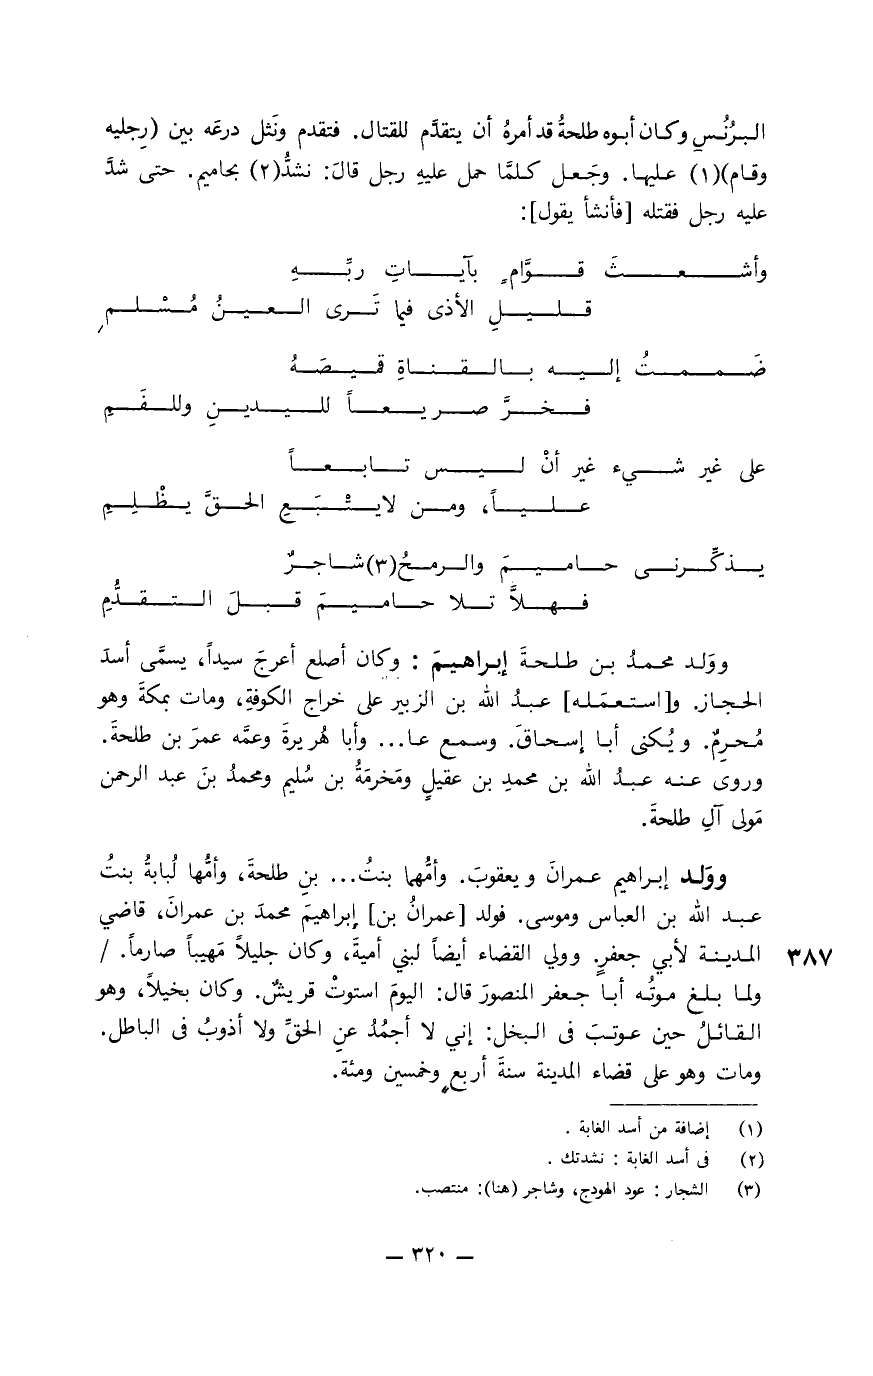 البُرْنُسِ وكان أبوه طلحةُ قد أمرهُ أن يتقدَّم للقتال. فتقدم ونَثل درعَه بين (رِجليه
وقام)(١) عليها. وجَعل كلمَّا حمل عليهِ رجل قالَ: نشدُّ(٢) بحاميم. حتى شدَّ
عليه رجل فقتله [فأنشأ يقول]:
وأشعثَ قوَّامٍ بآياتِ ربِّهِ
قليلِ الأذى فيما تَرى العينُ مُسْلمِ
ضَممتُ إليه بالقناةِ قميصَهُ
فخرَّ صريعاً لليدينِ وللفَمِ
على غير شيء غير أنْ ليس تابعاً
علياً، ومن لايتْبَعِ الحقَّ يظْلِمِ
يذكِّرني حاميمَ والرمحُ(٣)شاجرٌ
فهلاَّ تلا حاميمَ قبلَ التقدُّمِ
ووَلد محمدُ بن طلحةَ إبراهيمَ : وكان أصلع أعرجَ سيداً، يسمَّى أسدَ
الحجاز. و[استعمَله] عبدُ الله بن الزبير على خراج الكوفةِ، ومات بمكةَ وهو
مُحرِمٌ. ويُكنى أبا إسحاقَ. وسمع عا... وأبا هُريرةَ وعمَّه عمرَ بن طلحةَ.
وروى عنه عبدُ الله بن محمدِ بن عقيلٍ ومَخرمَةُ بن سُليم ومحمدُ بنَ عبد الرحمن
مَولى آلِ طلحةَ.
ووَلد إبراهيم عمرانَ ويعقوبَ. وأمُّهما بنتُ... بنِ طلحةَ، وأمُّها لُبابةُ بنتُ
عبد الله بن العباس وموسى. فولد [عمرانُ بن] إبراهيمَ محمدَ بن عمرانَ، قاضي
المدينة لأبي جعفرٍ. وولي القضاء أيضاً لبني أميةَ، وكان جليلاً مَهيباً صارماً. / ٣٨٧
ولما بلغ موتُه أبا جعفر المنصورَ قال: اليومَ استوتْ قريشٌ. وكان بخيلاً، وهو
القائلُ حين عوتبَ في البخل: إني لا أجمُدُ عنِ الحقِّ ولا أذوبُ في الباطل.
ومات وهو على قضاء المدينة سنةَ أربعٍ وخمسين ومئة.
(١) إضافة من أسد الغابة .
(٢) في أسد الغابة : نشدتك .
(٣) الشجار : عود الهودج، وشاجر (هنا): منتصب.
— ٣٢٠ —